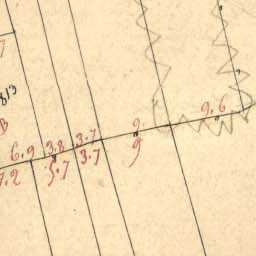 7
813
B
6.9 3.8 3.7 9. 9.6
7.2 5.7 3.7 9